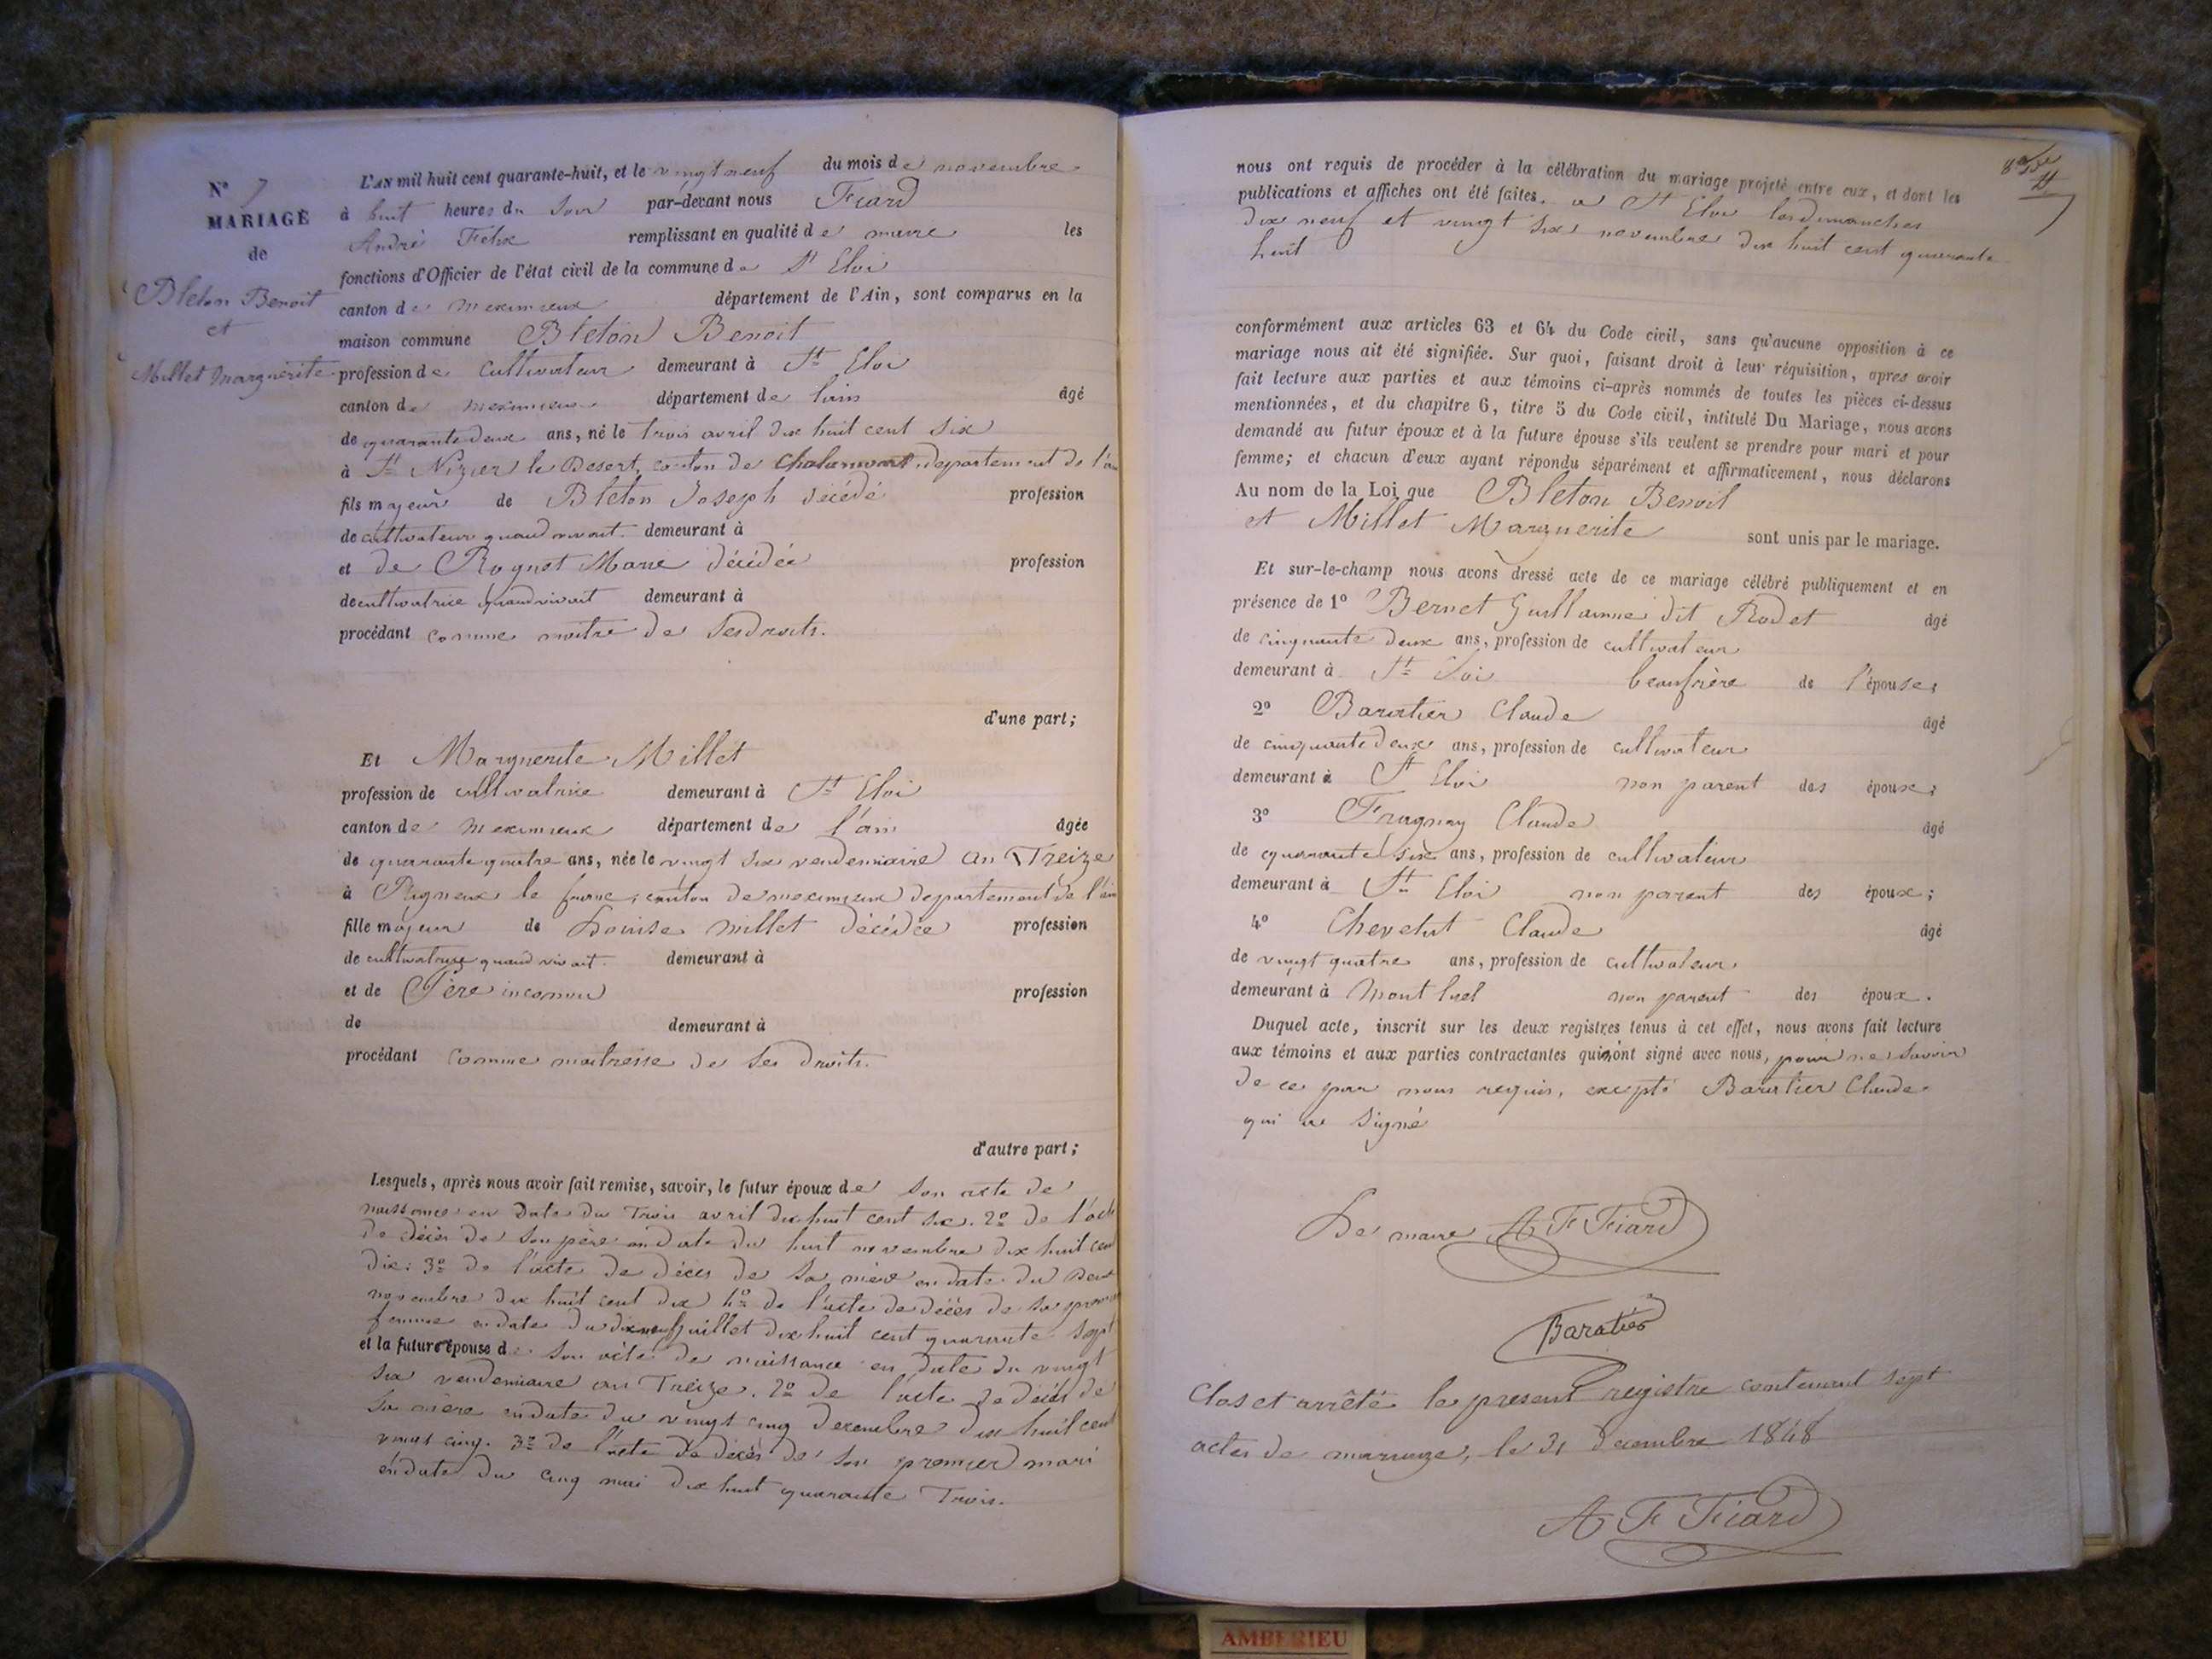 N° 7
MARIAGE
de
Bleton Benoit
et
Millet Marguerite
L'AN mil huit cent quarante-huit, et le vingt neuf du mois de novembre
à huit heures du soir par-devant nous Fiard
André Felix remplissant en qualité de maire les
fonctions d'Officier de l'état civil de la commune de St Eloi
canton de meximieux département de l'Ain, sont comparus en la
maison commune Bleton Benoit
profession de cultivateur demeurant à St Eloi
canton de meximieux département de l'ain âgé
de quarante deux ans, né le trois avril dix huit cent six
à St Nizier le Desert, canton de Chalamont, departement de l'ain
fils majeur de Bleton Joseph décédé profession
de cultivateur quand vivait demeurant à
et de Roynet Marie décédée profession
de cultivatrice quand vivait demeurant à
procédant comme maitre de ses droits.
d'une part;
Et Marguerite Millet
profession de cultivatrice demeurant à St Eloi
canton de meximieux département de l'ain âgée
de quarante quatre ans, née le vingt six vendemiaire an Treize
à Rigneux le franc, canton de meximieux departement de l'ain
fille majeur de Louise Millet décédée profession
de cultivatrice quand vivait. demeurant à
et de Père inconnu profession
de demeurant à
procédant comme maitresse de ses droits.
d'autre part;
Lesquels, après nous avoir fait remise, savoir, le futur époux de son acte de
naissance en date du trois avril dix huit cent six. 2° de l'acte
de décès de son père en date du huit novembre dix huit cent
dix: 3° de l'acte de décès de sa mère en date du deux
novembre dix huit cent dix 4° de l'acte de décès de sa première
femme en date du dix neuf juillet dix huit cent quarante sept
et la future épouse de son acte de naissance en date du vingt
six vendemiaire an Treize. 2° de l'acte de décès de
sa mère en date du vingt cinq decembre dix huit cent
vingt cinq. 3° de l'acte de décès de son premier mari
en date du cinq mai dix huit quarante Trois.
nous ont requis de procéder à la célébration du mariage projeté entre eux, et dont les
publications et affiches ont été faites, a St Eloi les dimanches
dix neuf et vingt six novembre dix huit cent quarante
huit
conformément aux articles 63 et 64 du Code civil, sans qu'aucune opposition à ce
mariage nous ait été signifiée. Sur quoi, faisant droit à leur réquisition, apres avoir
fait lecture aux parties et aux témoins ci-après nommés de toutes les pièces ci-dessus
mentionnées, et du chapitre 6, titre 5 du Code civil, intitulé Du Mariage, nous avons
demandé au futur époux et à la future épouse s'ils veulent se prendre pour mari et pour
femme; et chacun d'eux ayant répondu séparément et affirmativement, nous déclarons
Au nom de la Loi que Bleton Benoit
et Millet Marguerite sont unis par le mariage.
Et sur-le-champ nous avons dressé acte de ce mariage célébré publiquement et en
présence de 1° Bernet Guillaume dit Rodet âgé
de cinquante deux ans, profession de cultivateur
demeurant à St Eloi beaufrère de l'épouse,
2° Baratier Claude âgé
de cinquante deux ans, profession de cultivateur
demeurant à St Eloi non parent des époux;
3° Frugnay Claude âgé
de quarante six ans, profession de cultivateur
demeurant à St Eloi non parent des époux;
4° Chevelut Claude âgé
de vingt quatre ans, profession de cultivateur
demeurant à Mont luel non parent des époux.
Duquel acte, inscrit sur les deux registres tenus à cet effet, nous avons fait lecture
aux témoins et aux parties contractantes qui n'ont signé avec nous, pour ne savoir
de ce par nous requis, excepté Baratier Claude
qui a signé
Le maire A F Fiard
Baratier
Clos et arrêté le present registre contenant sept
actes de mariage, le 31 decembre 1848
A F Fiard
AMBERIEU